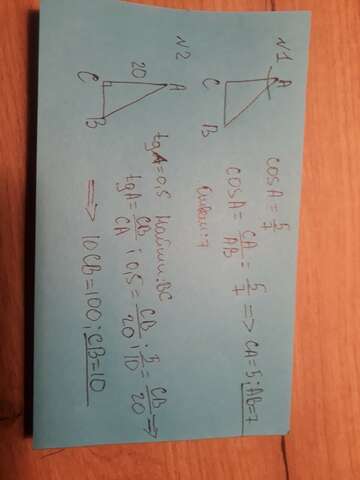 N1
A
C
B
cosA = 5/7
cosA = CA/AB = 5/7 => CA=5; AB=7
Ответ: 7
N2
20
C
A
B
tgA=0,5 Найти: BC
tgA = CB/CA ; 0,5 = CB/20 ; 5/10 = CB/20 =>
=> 10CB=100; CB=10